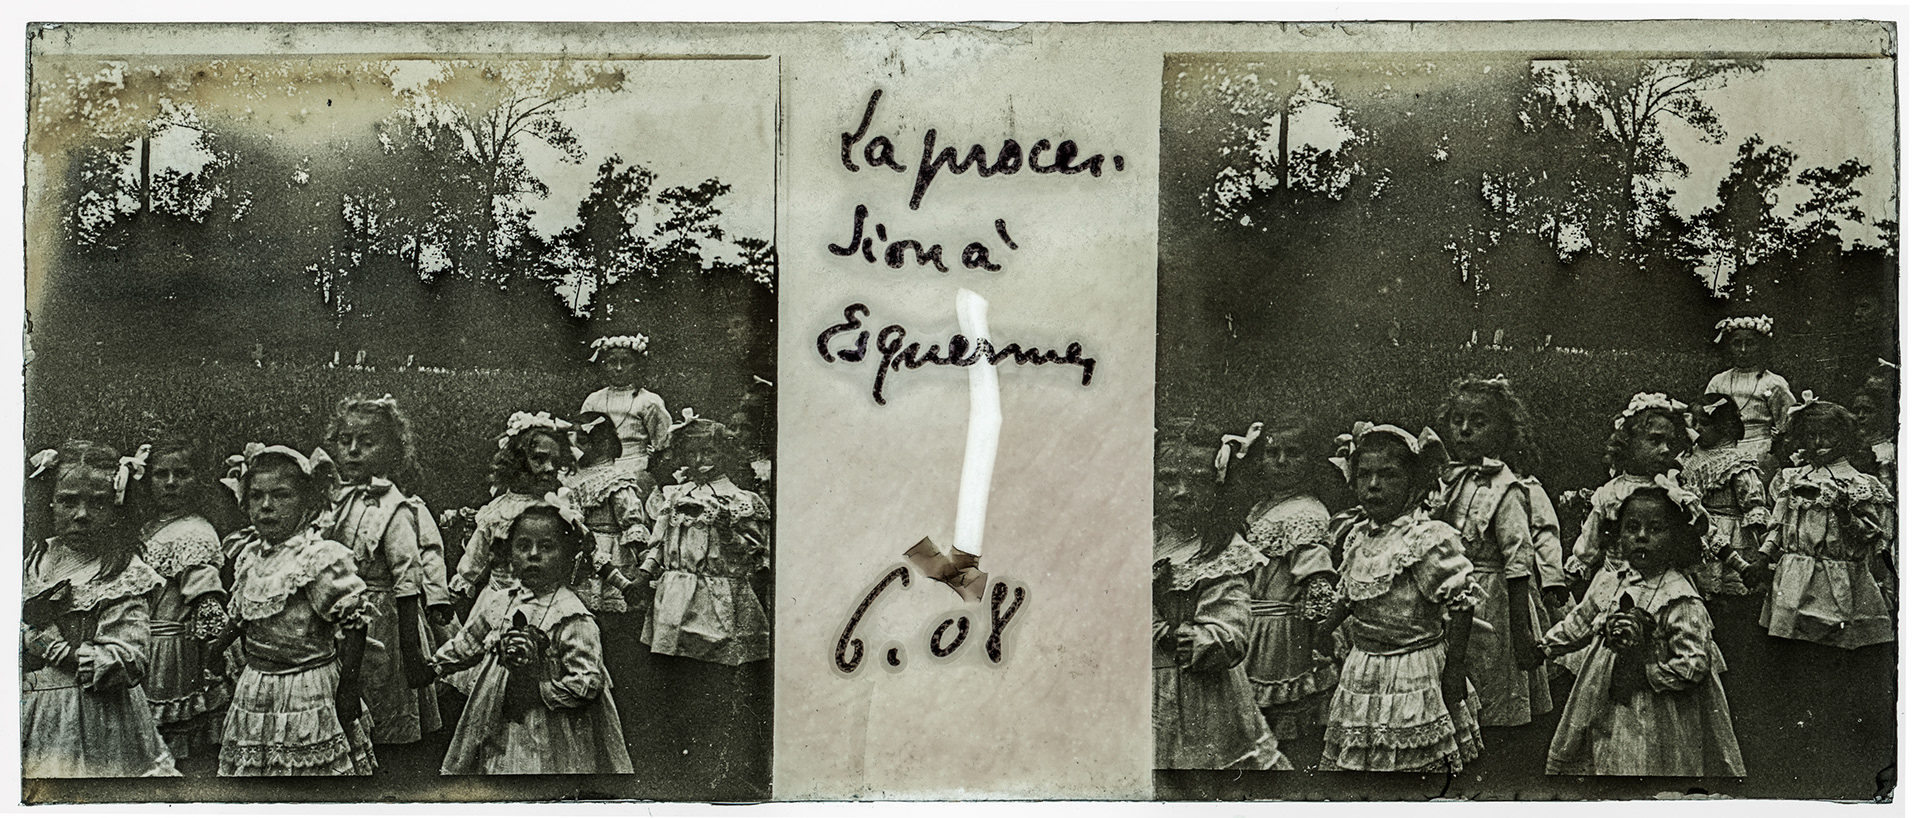 La proces-
sion à
Esquermes
6.08